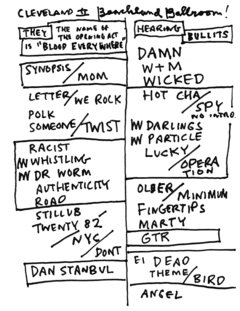 CLEVELAND II Beachland Ballroom!
THEY THE NAME OF
THE OPENING ACT
IS "BLOOD EVERYWHERE
SYNOPSIS / MOM
LETTER / WE ROCK
POLK
SOMEONE / TWIST
RACIST
W WHISTLING
W DR WORM
AUTHENTICITY
ROAD
STILLUB
TWENTY 82 /
NYC /
DONT
DAN STANBUL
HEARING BULLITS
DAMN
W+M
WICKED
HOT CHA / SPY
NO INTRO
W DARLINGS
W PARTICLE
LUCKY / OPERA
TION
OLDER / MINIMUM
FINGERTIPS
MARTY
GTR
E1 DEAD
THEME / BIRD
ANGEL